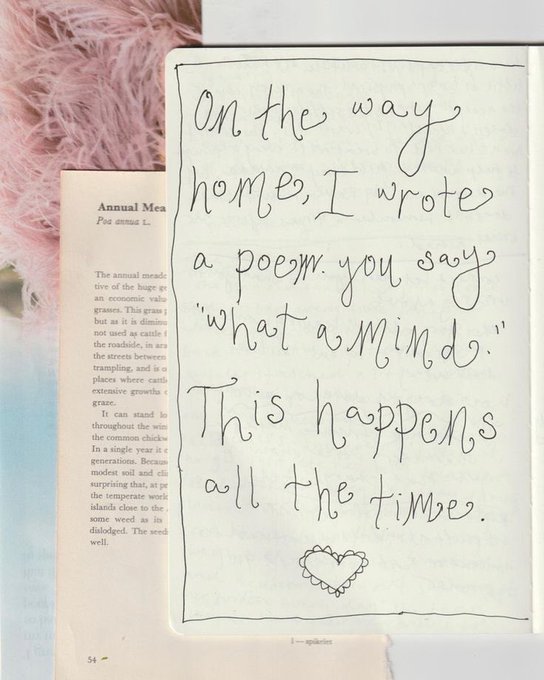 On the way
home, I wrote
a poem. you say
"what a mind."
This happens
all the time.
Annual Mea
Poa annua L.
The annual meado
tive of the huge ge
an economic valu
grasses. This grass p
but as it is diminu
not used as cattle f
the roadside, in ara
the streets between
trampling, and is o
places where cattl
extensive growths o
graze.
It can stand lo
throughout the win
the common chickw
In a single year it c
generations. Becaus
modest soil and cli
surprising that, at pr
the temperate work
islands close to the
some weed as its
dislodged. The seed
well.
1 — spikelet
54